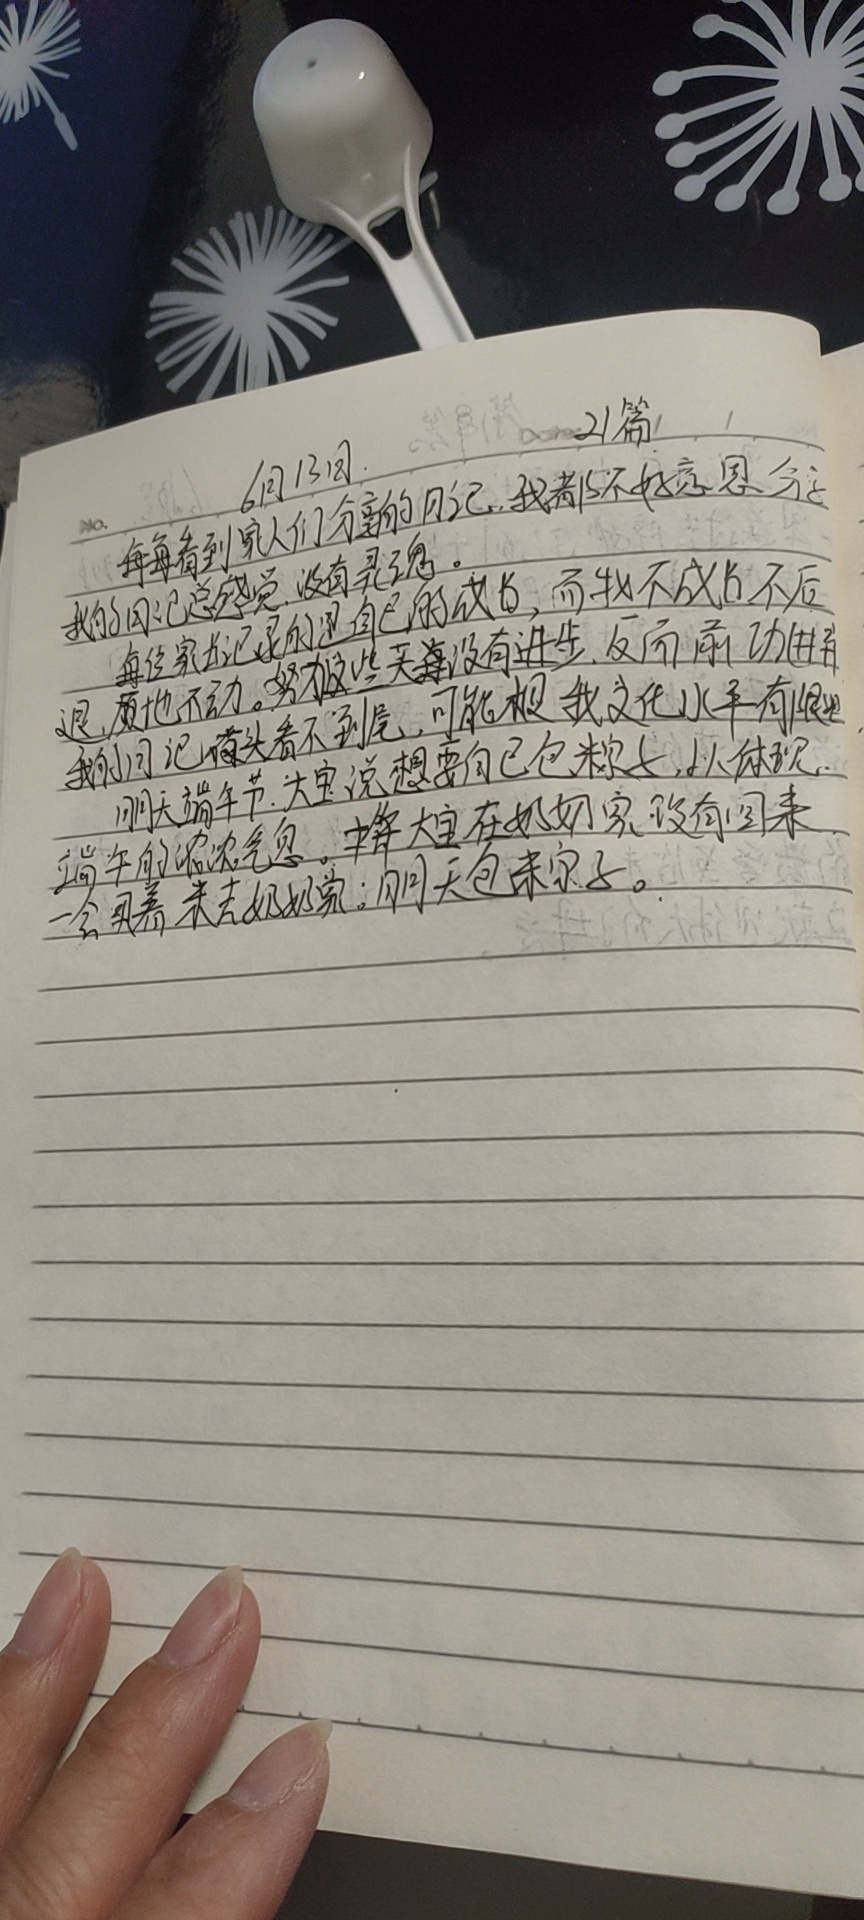 21篇
6月13日.
每每看到家人们分享的日记,我都不好意思分享
我的日记总感觉,没有灵魂。
每位家长记录的是自己的成长,而我不成长不后
退,原地不动。努力这些天每没有进步,反而前功进弃
我的日记横头看不到尾,可能根我文化水平有限吧
明天端午节.大宝说想要自己包粽子,以体现
端午的浓浓气息。中午大宝在奶奶家没有回来
一会买着米去奶奶家;明天包粽子。